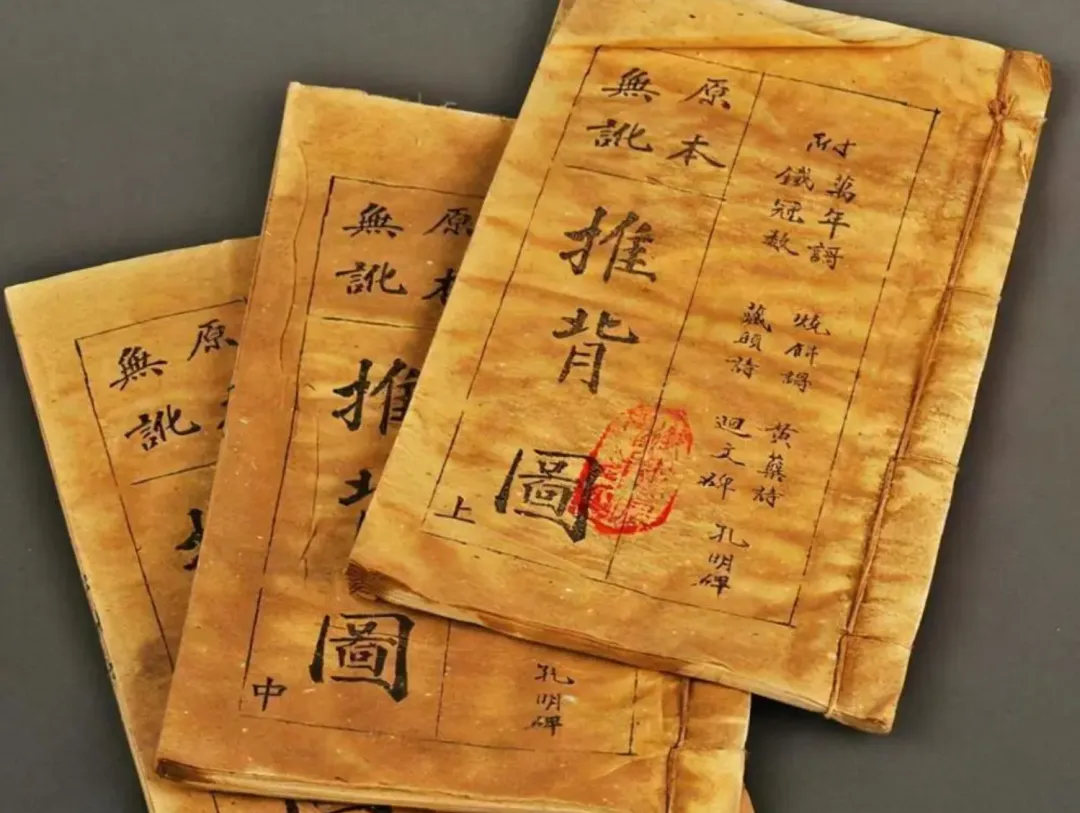 附
萬年謌
鐵冠数
燒餅謌
藏頭詩
黄蘗詩
迴文碑
孔明碑
原本
無訛
推背圖
上
原本
無訛
推背圖
中
孔明碑
原
無訛